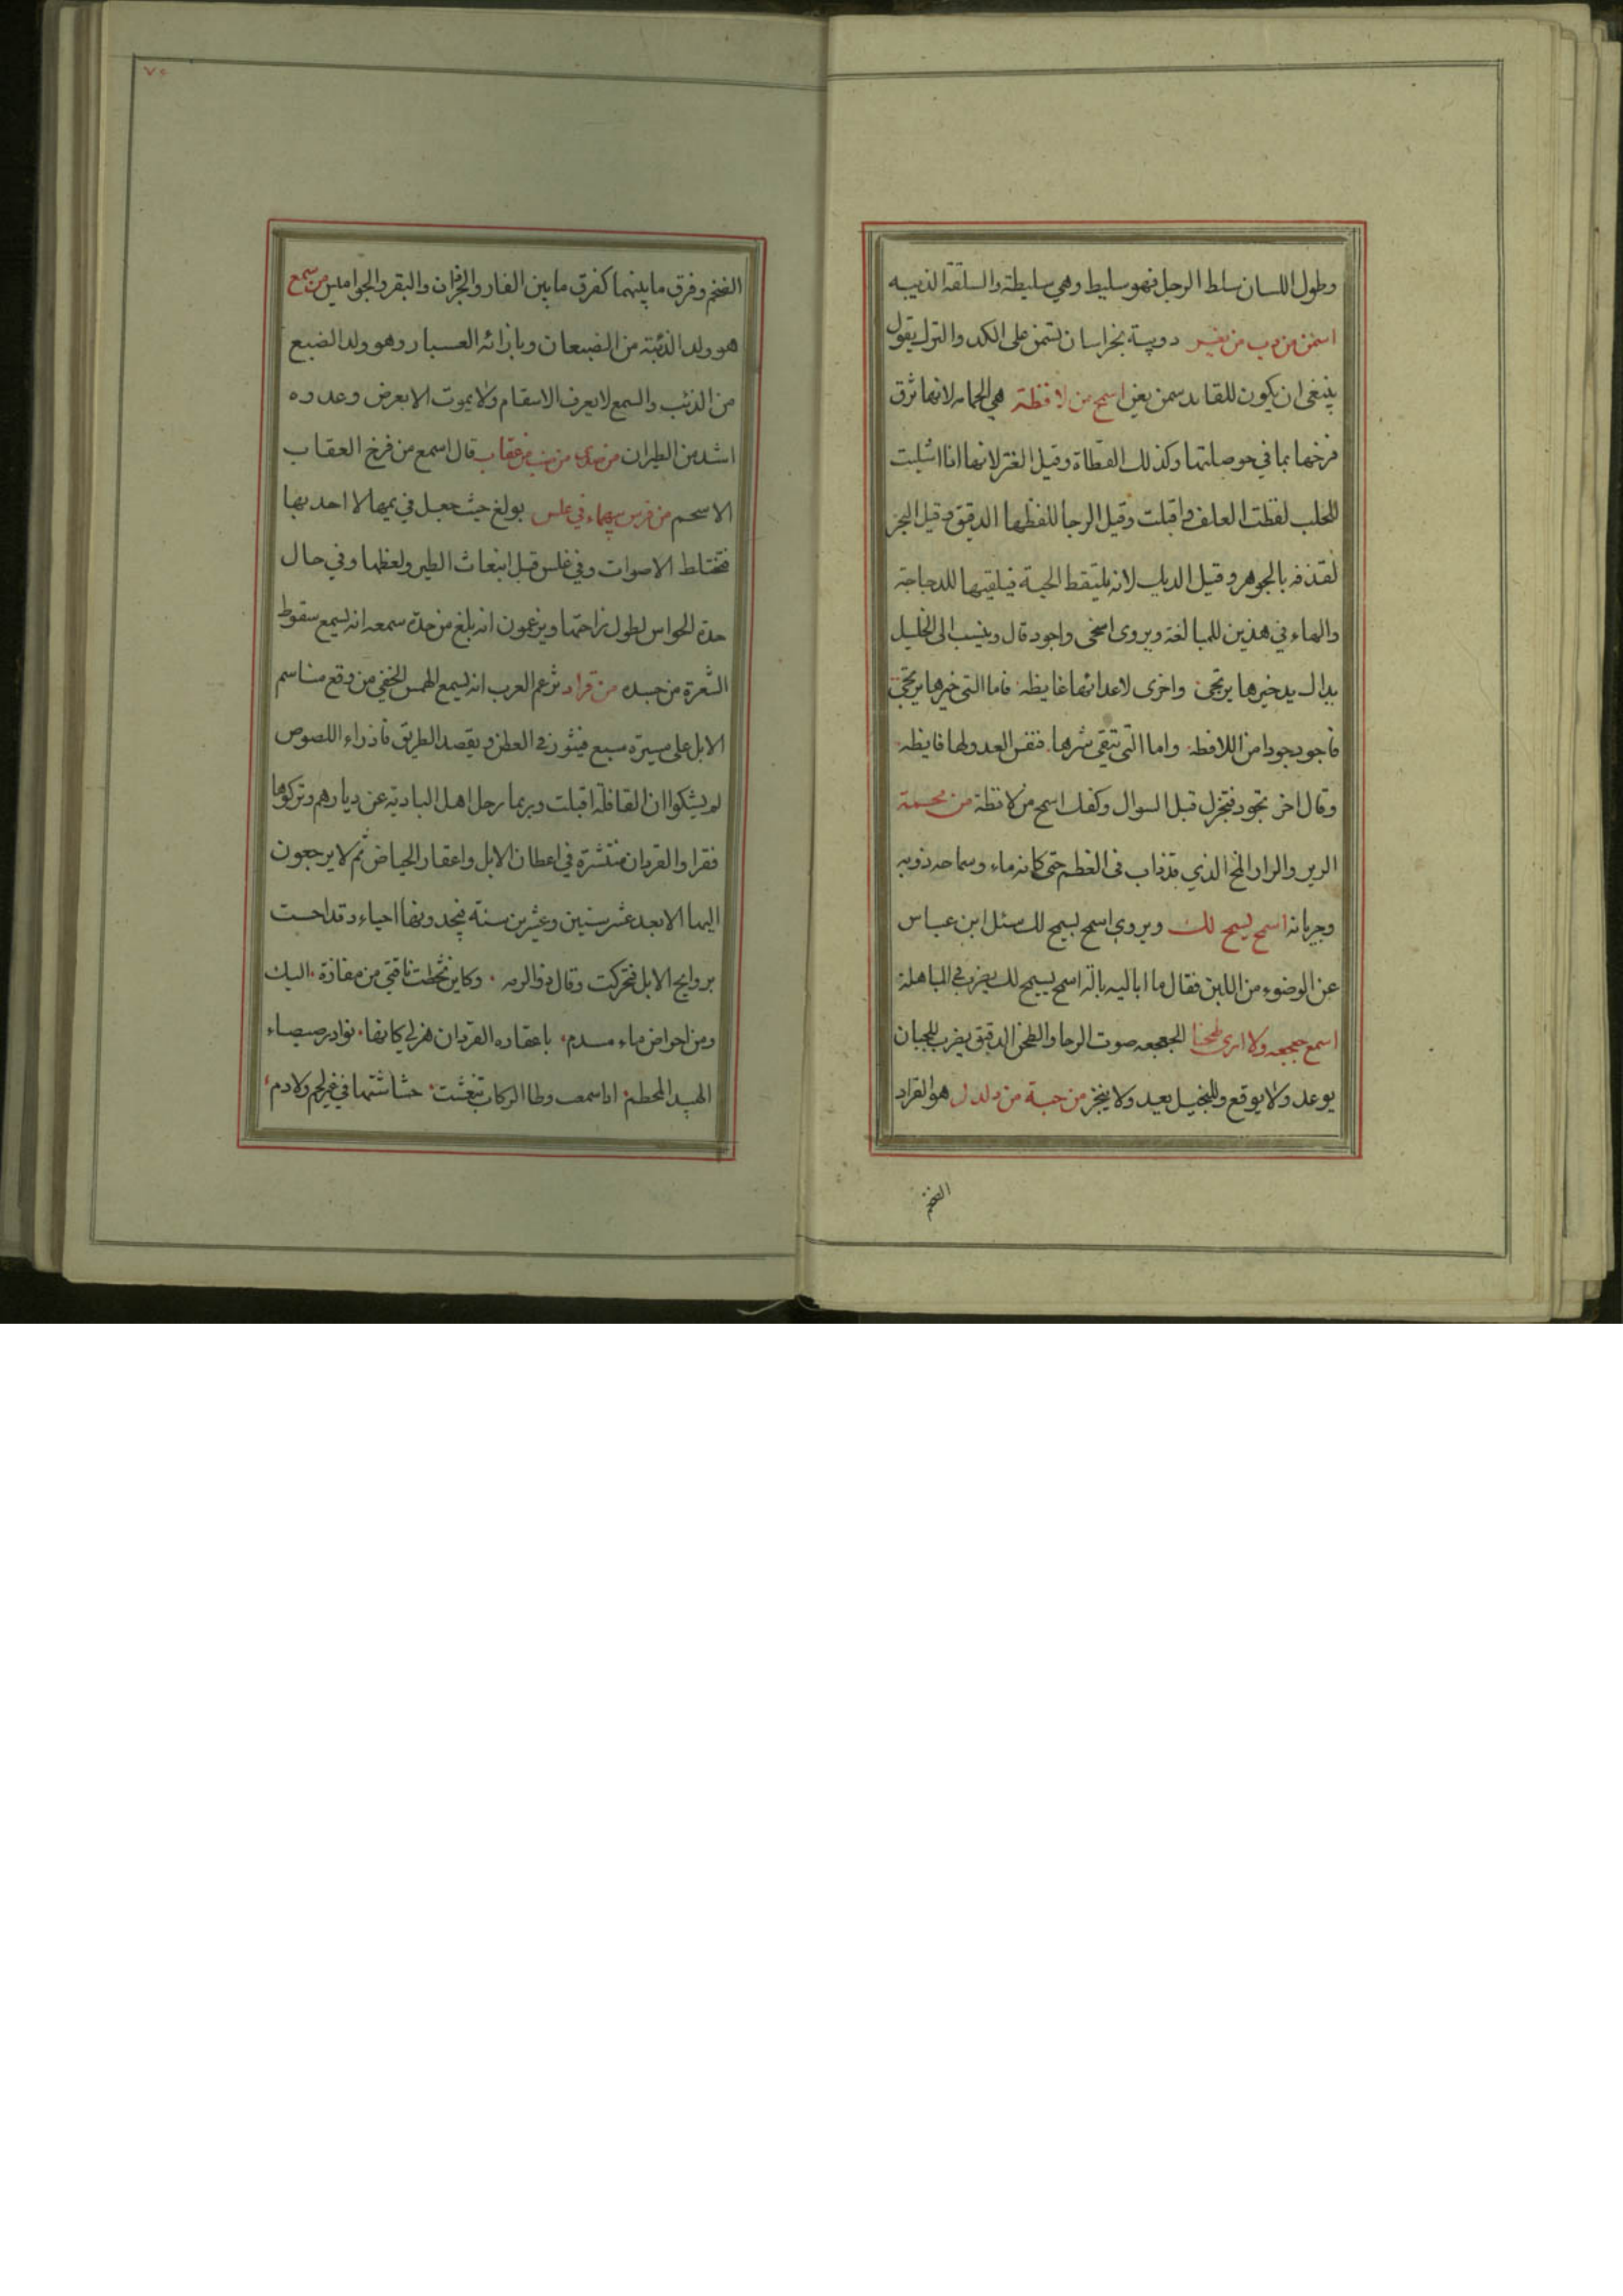 وطول اللسان سلط الرجل فهو سليط وهي سليطة والسلقة الذيبه
اسمن من دب من يغير دويبة بخراسان تسمن على الكد والترك يقول
ينبغي ان يكون للقايد سمن يغير اسمح من لافظة هي الحمامه لانها تزق
فرخها بما في حوصلتها وكذلك القطاة وقيل العنز لانها اذا اشليت
للحلب لفظت العلف واقبلت وقيل الرحا للفظها الدقيق وقيل البحر
لقذفه بالجوهر وقيل الديك لانه يلتقط الحبة فيلقيها للدجاجة
والهاء في هذين للمبالغة ويروى اسخى واجود قال وينسب الى الخليل
يداك يد خيرها يرتجى واخرى لاعدائها غايظه فاما التي خيرها يرتجى
فاجود جودا من اللافظه واما التي تتقى شرها فنفس العدو لها فايظه
وقال اخر تجود فتجزل قبل السوال وكفك اسمح من لافظة من مخة
الرير والرار المخ الذي قد ذاب في العظم حتى كانه ماء وسماحه ذوبه
وجريانه اسمح يسمح لك ويروى اسمح يسمح لك سئل ابن عباس
عن الوضوء من اللبن فقال ما اباليه بالة اسمح يسمح لك يضرب في المباهلة
اسمع جعجعه ولا ارى طحنا الجعجعه صوت الرحا والطحن الدقيق يضرب للجبان
يوعد ولا يوقع وللبخيل يعد ولا ينجز من حية من دلدل هو القراد
الضخم
الضخم وفرق ما بينهما كفرق ما بين الفار والجرذان والبقر والجواميس من سمع
هو ولد الذئبة من الضبعان وبازائه العسبار وهو ولد الضبع
من الذئب والسمع لا يعرف الاسقام ولا يموت الا بعرض وعدوه
اشد من الطيران من صدى من ضب من عقاب قال اسمع من فرخ العقاب
الاسحم من فرس بيهماء في غلس بولغ حيث جعل في يهما لا احد بها
فتختلط الاصوات وفي غلس قبل انبعاث الطير ولغطها وفي حال
حدة الحواس لطول راحتها ويزعمون انه بلغ من حدة سمعه انه ليسمع سقوط
الشعرة من جسده من قراد تزعم العرب انه ليسمع الهمس الخفي من وقع مناسم
الابل على مسيرة سبع فيثور في العطن ويقصد الطريق فاذا راه اللصوص
لم يشكوا ان القافلة اقبلت وربما رحل اهل البادية عن ديارهم وتركوها
فقرا والقردان منتشرة في اعطان الابل واعقار الحياض ثم لا يرجعون
اليها الا بعد عشر سنين وعشرين سنة فيجدونها احياء وقد احست
بروايح الابل فتحركت وقال ذو الرمه وكاين تخطت ناقتي من مفازة اليك
ومن احواض ماء مسدم باعقاره القردان هزلى كانها نوادر صيصاء
الهبيد المحطم اذا سمعت وطا الركاب تنغشت حشاشتها في غير لحم ولا دم